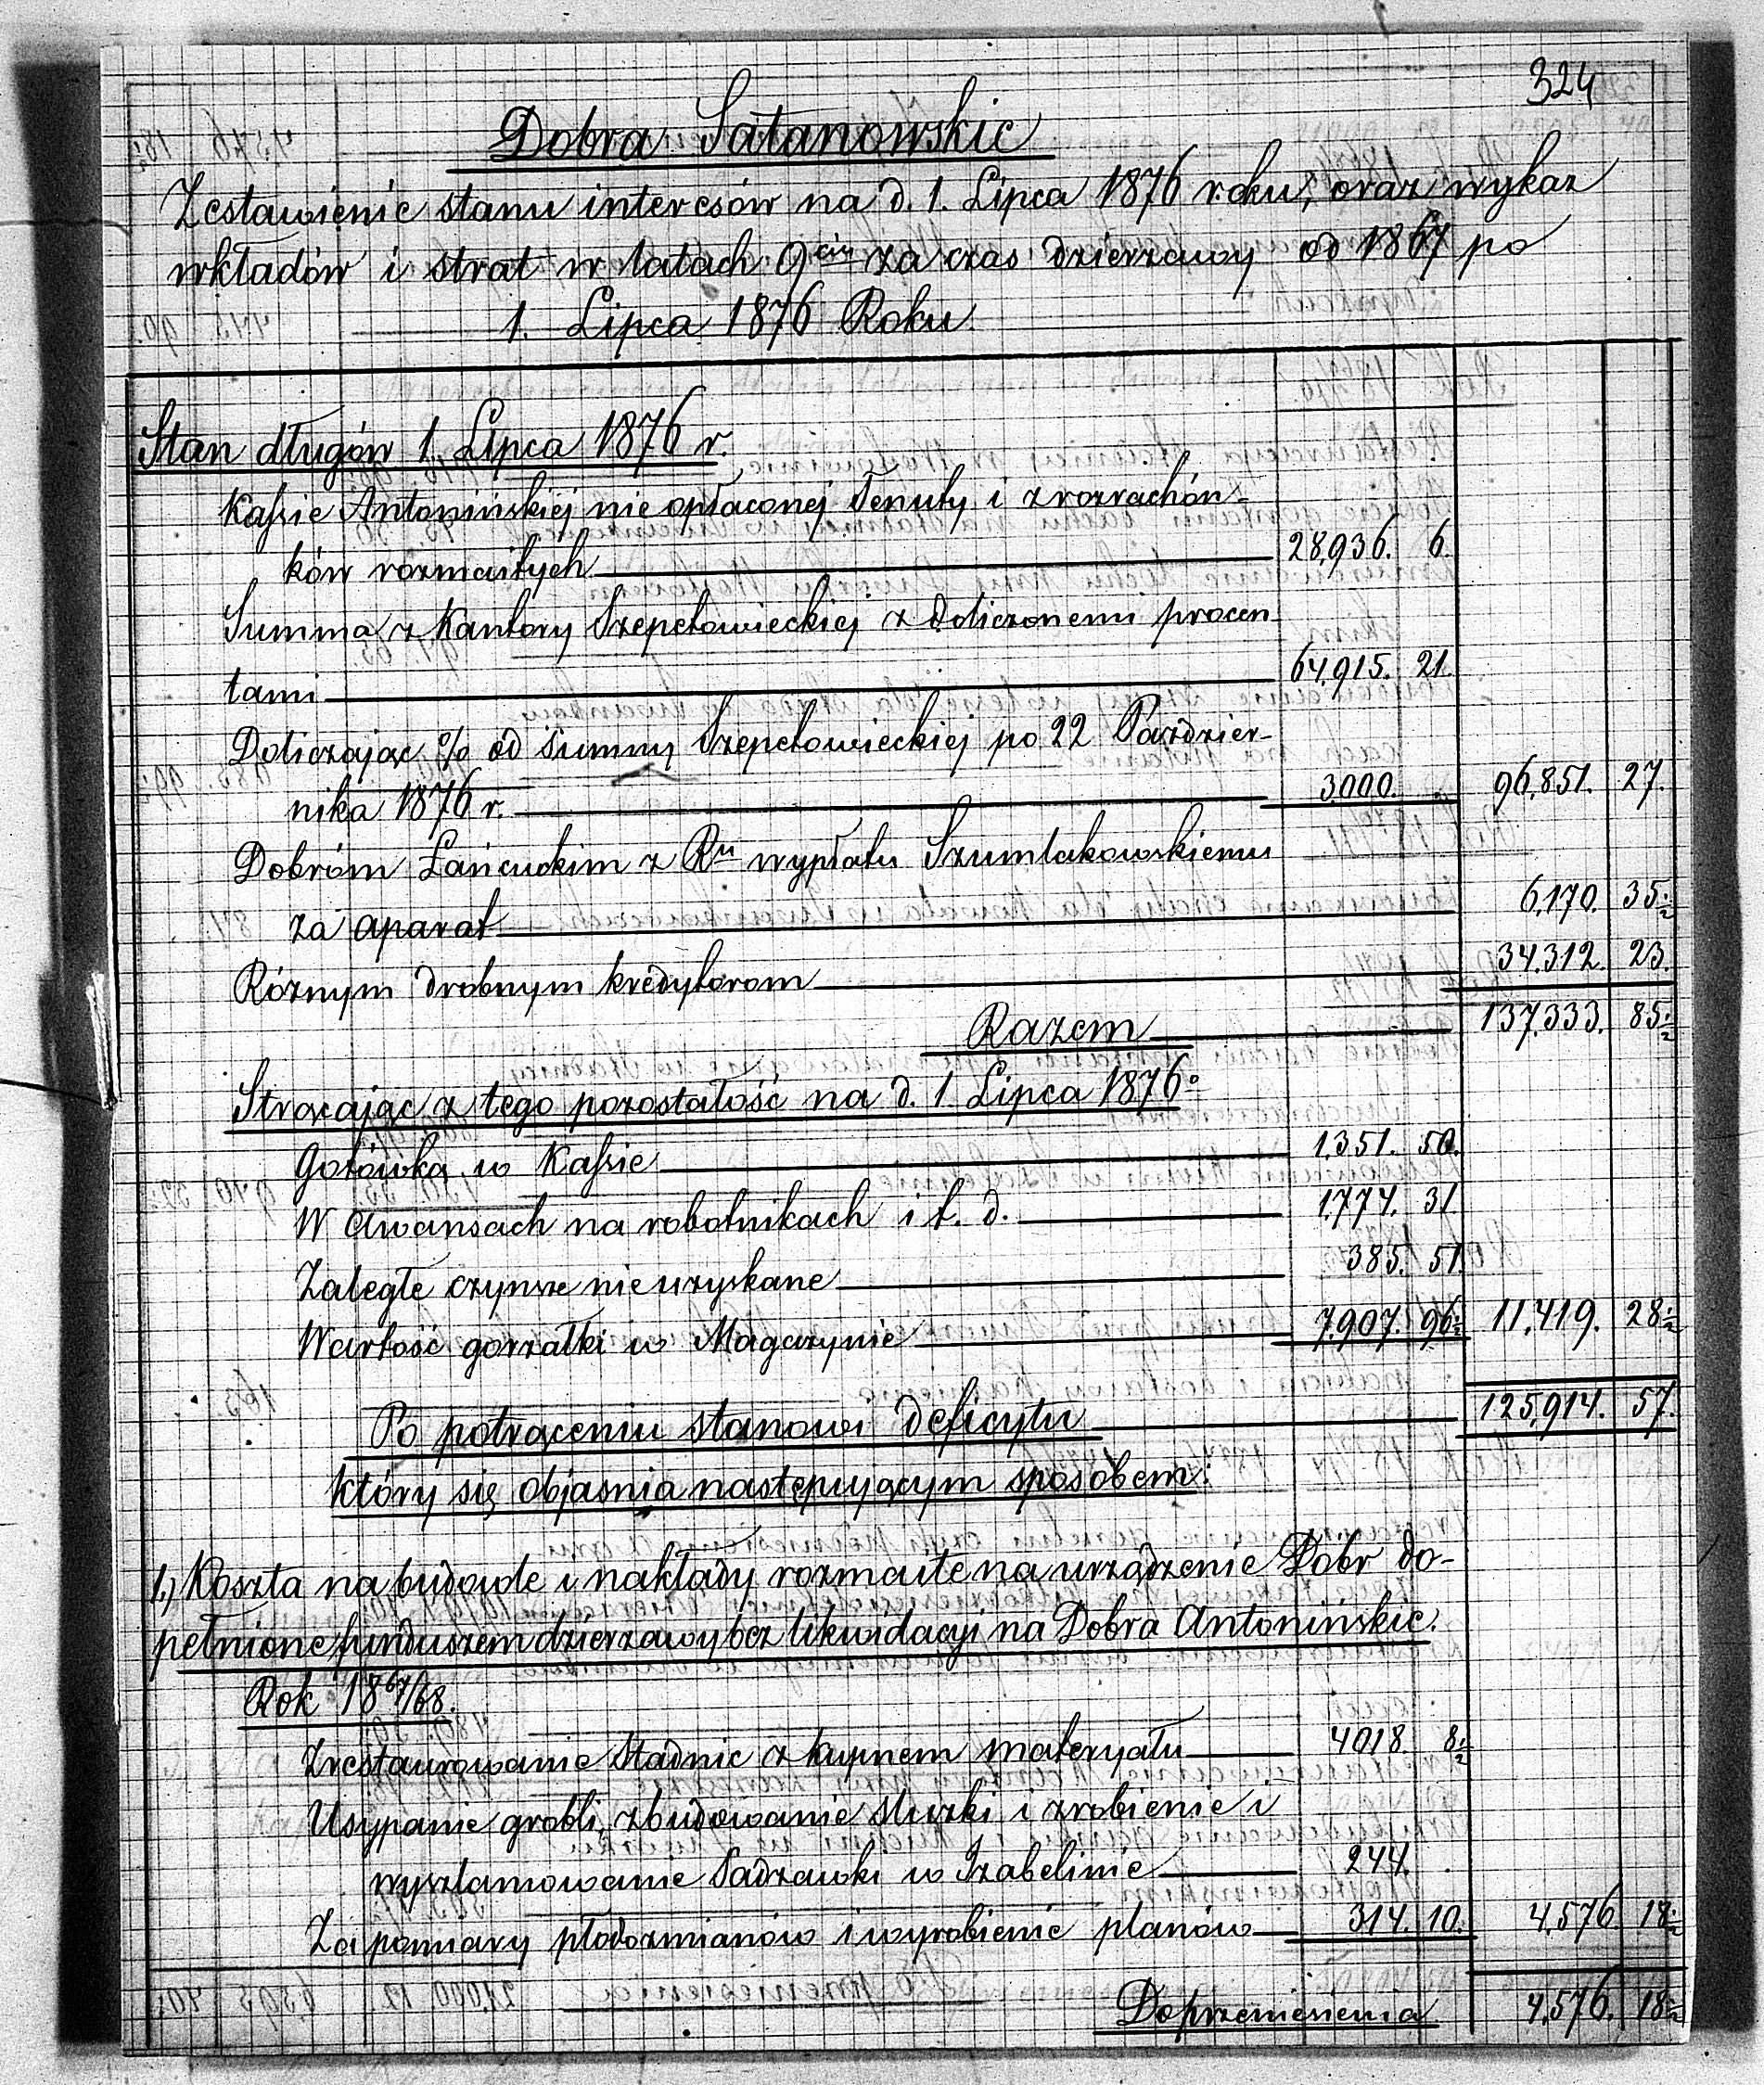 324
Dobra Satanowskie
Zestawienie stanu interesów na d. 1. Lipca 1876 roku, oraz wykaz
wkładów i strat w latach 9ciu za czas dzierżawy od 1867 po
1. Lipca 1876 Roku.
Stan długów 1. Lipca 1876 r.
Kassie Antonińskiej nie opłaconej Tenuty i z rozrachón-
ków rozmaitych 28,936. 6.
Summa z Kantory Szepetowieckiej z doliczonemi procen
tami 64,915. 21.
Doliczając % od Summy Szepetowieckiej po 22 Paździer-
nika 1876 r. 3,000. 96,851. 27.
Dobróm Łańcuckim z Rn wypłatu Szumlakowskiemu
za aparat 6,170. 35½
Róznym drobnym kredytorom 34,312. 23.
Razem 137,333. 85½
Strącając z tego pozostałość na d. 1 Lipca 1876o
Gotówką w Kassie 1,351. 50.
W awansach na robotnikach i t. d. 1,774. 31
Zaległe czynsze nieuzyskane 385. 51.
Wartość gorzałki w Magazynie 7,907. 96½ 11,419. 28½
Po potrąceniu stanowi deficytu 125,914. 57.
który się objasnia następującym sposobem:
1.) Koszta na budowle i nakłady rozmaite na urządzenie Dóbr do-
pełnione funduszem dzierzawy bez likwidacyi na Dobra Antonińskie.
Rok 1867/68.
Zrestaurowanie Stadnic z kupnem materyału 4018. 8½
Usypanie grobli, zbudowanie śluzki i zrobienie i
wyszlamowanie Sadzawki w Izabelinie 244. .
Za pomiary płodozmianów i wyrobienie planów 314. 10. 4,576 18½
Do przeniesienia 4,576. 18½